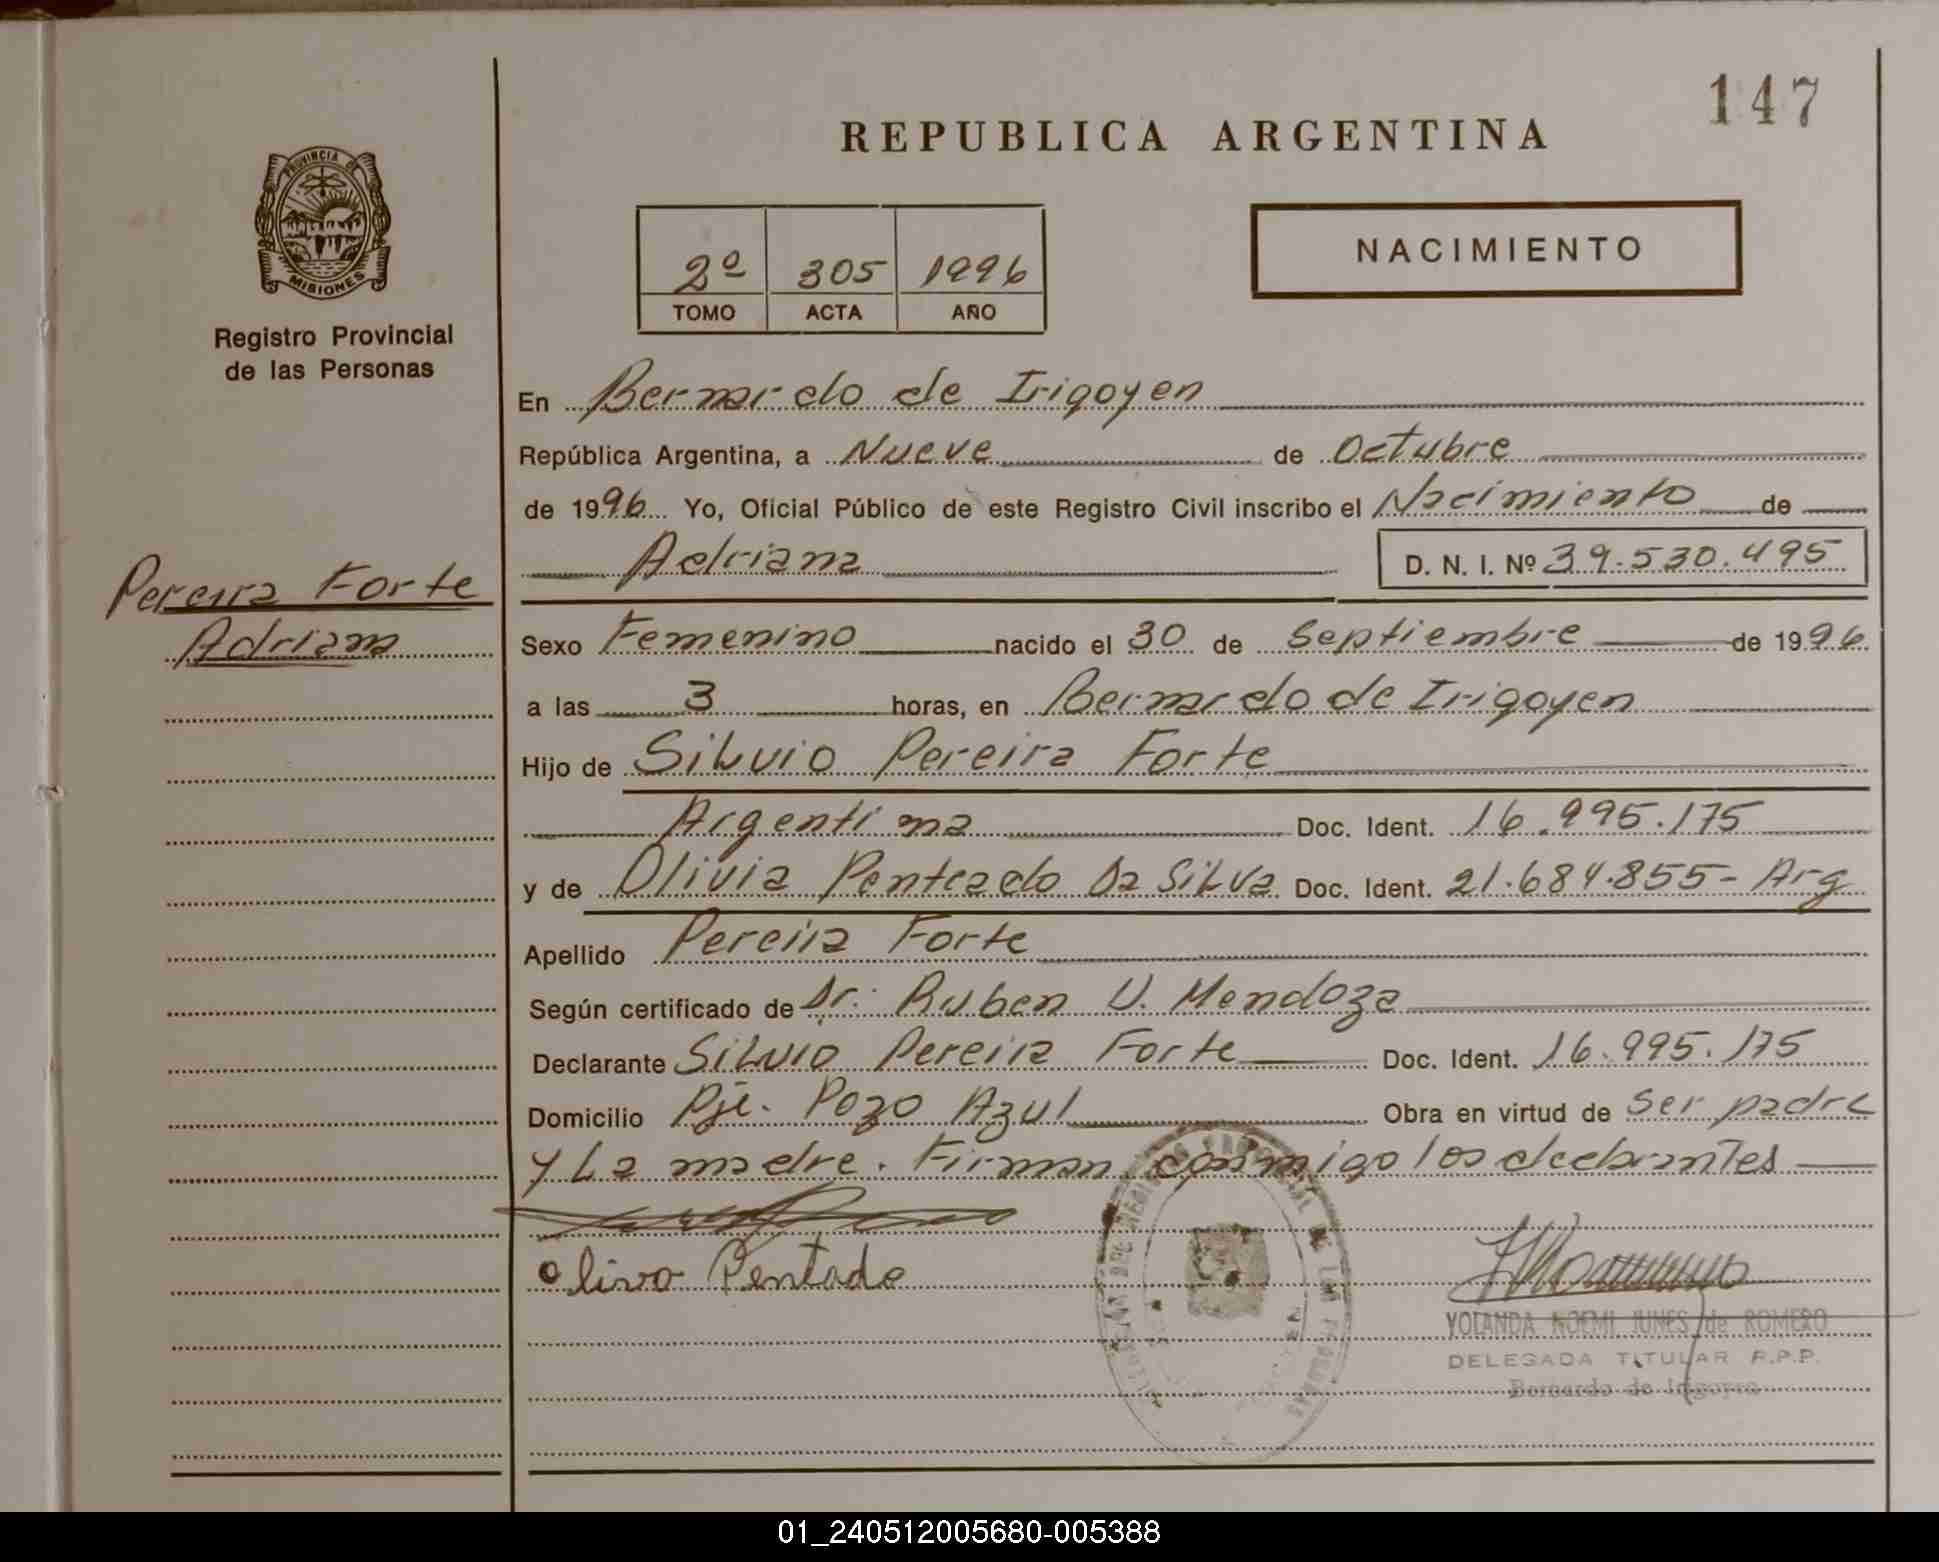 147
REPUBLICA ARGENTINA
PROVINCIA DE
MISIONES
Registro Provincial
de las Personas
2º 305 1996
TOMO ACTA AÑO
NACIMIENTO
En Bernardo de Irigoyen
República Argentina, a Nueve de Octubre
de 1996 Yo, Oficial Público de este Registro Civil inscribo el Nacimiento de
Adriana D. N. I. Nº 39.530.495
Pereira Forte
Adriana
Sexo Femenino nacido el 30 de Septiembre de 1996
a las 3 horas, en Bernardo de Irigoyen
Hijo de Silvio Pereira Forte
Argentina Doc. Ident. 16.995.175
y de Olivia Penteado Da Silva Doc. Ident. 21.684.855- Arg
Apellido Pereira Forte
Según certificado de Dr. Ruben U. Mendoza
Declarante Silvio Pereira Forte Doc. Ident. 16.995.175
Domicilio Pje. Pozo Azul Obra en virtud de ser padre
y La madre. Firman conmigo los declarantes
olivo Pentado
YOLANDA NOEMI JUNES de ROMERO
DELEGADA TITULAR R.P.P.
Bernardo de Irigoyen
01_240512005680-005388